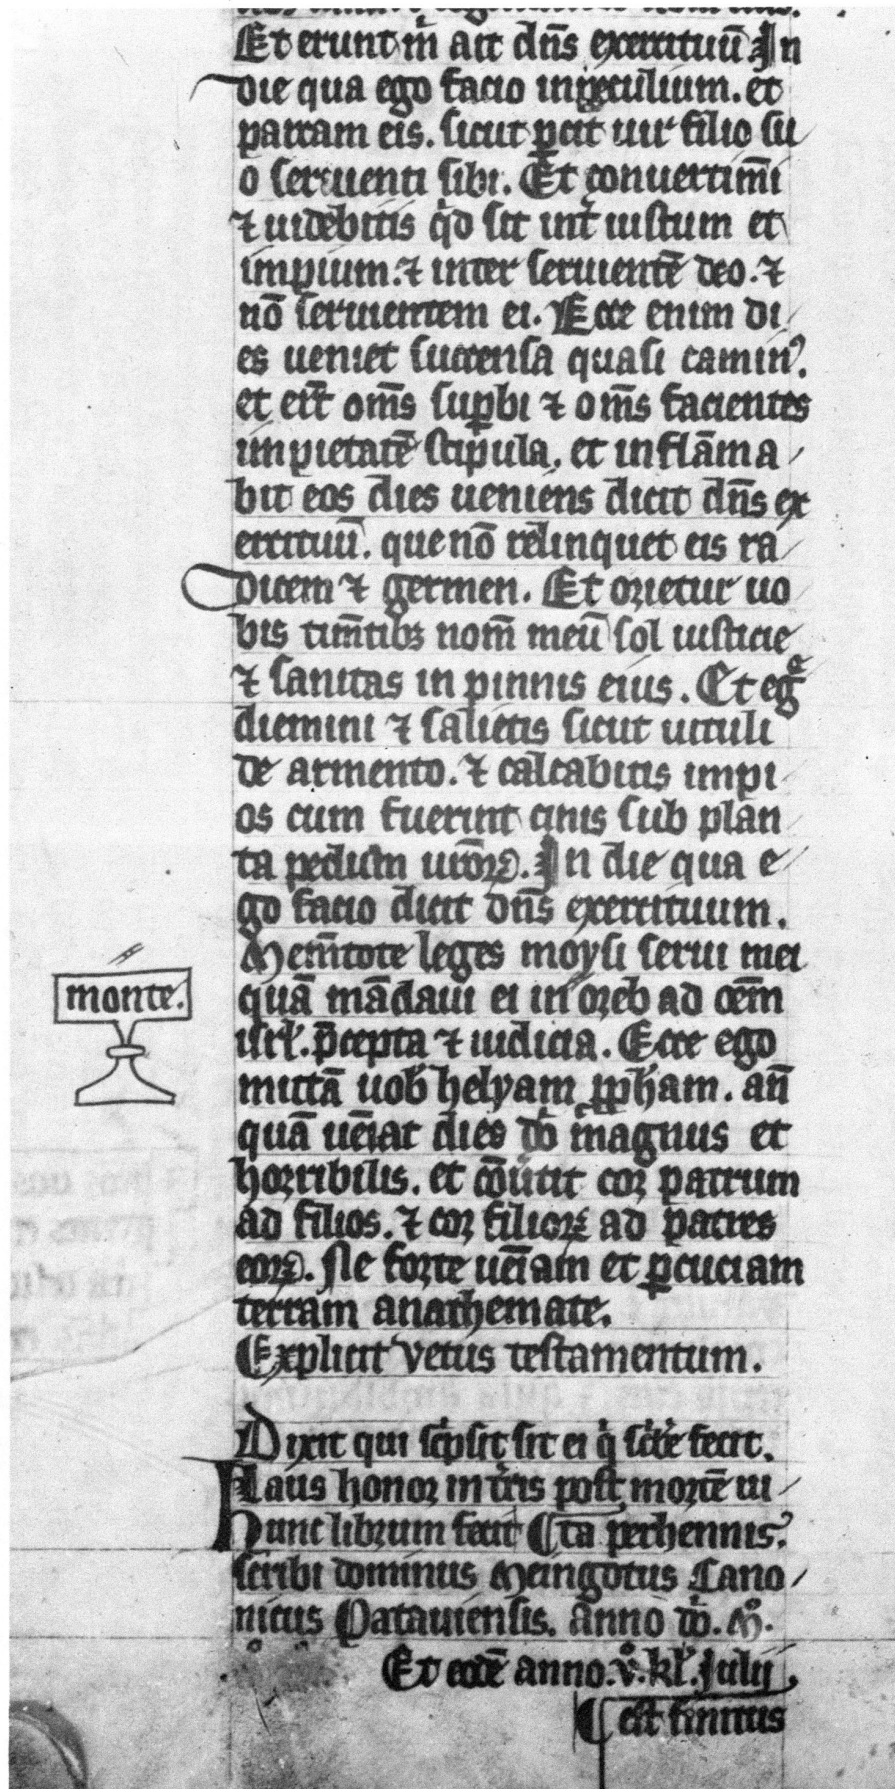 Et erunt m̄ ait dn̄s exercituū In
die qua ego facio in peculium. et
parcam eis. sicut ꝑcit uir filio su
o seruienti sibi. Et conuertim̄i
⁊ uidebitis qͥd sit int̄ iustum et
impium. ⁊ inter seruientē deo. ⁊
nō seruientem ei. Ecce enim di
es ueniet succensa quasi caminꝰ.
et er̄t om̄s suꝑbi ⁊ om̄s facientes
impietatē stipula. et inflāma
bit eos dies ueniens dicit dn̄s ex
ercituū. que nō relinquet eis ra
dicem ⁊ germen. Et orietur uo
bis tim̄tibꝫ nom̄ meū sol iusticie
⁊ sanitas in pinnis eius. Et egͣ
diemini ⁊ salietis sicut uituli
de armento. ⁊ calcabitis impi
os cum fuerint cinis sub plan
ta pedum ur̄oꝝ. In die qua e
go facio dicit dn̄s exercituum.
Mem̄tote leges moysi serui mei
monte.
quā mādaui ei in oreb ad oēm
isrl̄. p̄cepta ⁊ iudicia. Ecce ego
mittā uob̄ helyam ꝓph̄am. an̄
quā ueniat dies dn̄i magnus et
horribilis. et cōūtit cor patrum
ad filios. ⁊ cor filioꝝ ad patres
eoꝝ. Ne forte ueniam et ꝑcuciam
terram anathemate.
Explicit vetus testamentum.
Dixit qui scͥpsit sit ei qͥ
fecit.
Laus honor in t̄ris post mortē ui
hunc librum fecit ¶ ta perhennis.
scribi dominus Meingotus Cano
nicus Patauiensis. anno dn̄i. Mͦ.
Et eodē anno. vͦ. kl̄. Julij
¶ est finitus